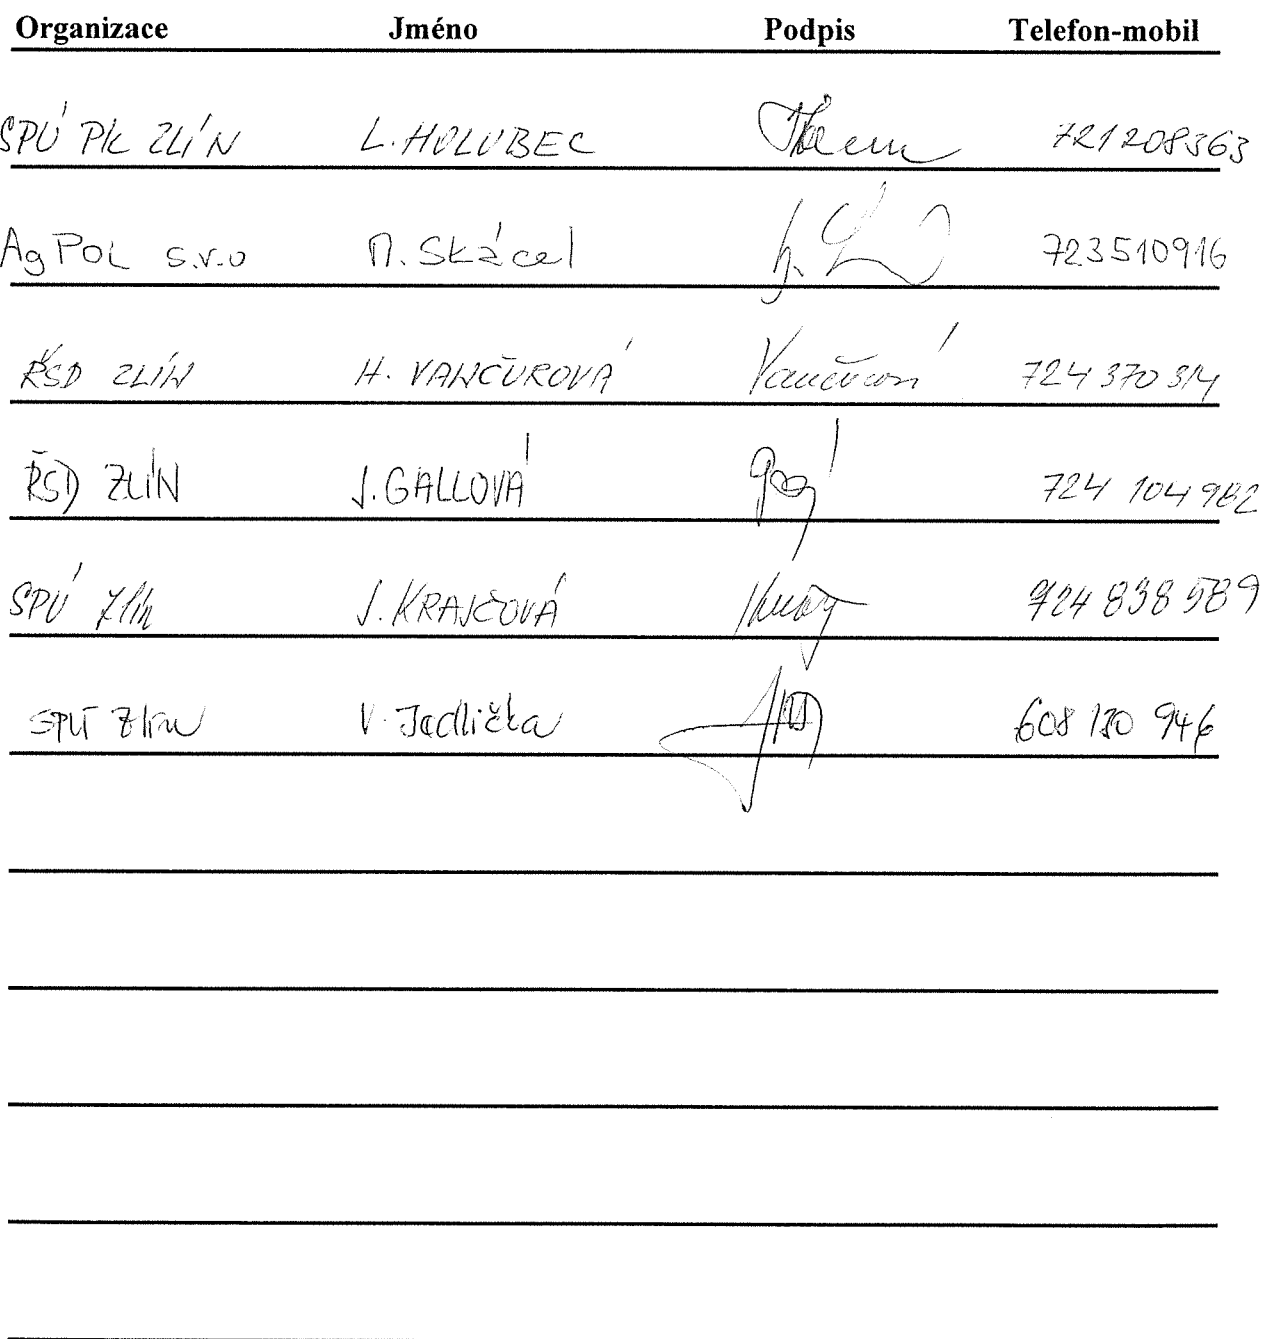 Organizace Jméno Podpis Telefon-mobil
SPÚ PK ZLÍN L. HOLUBEC 721208363
AgPOL s.r.o M. Skácel 723510916
ŘSD ZLÍN H. VANČUROVÁ Vančurová 724 370 314
ŘSD ZLÍN J. GALLOVÁ 724 104 982
SPÚ Zlín J. KRAJČOVÁ 724 838 589
SPÚ Zlín V. Jedlička 608 130 946